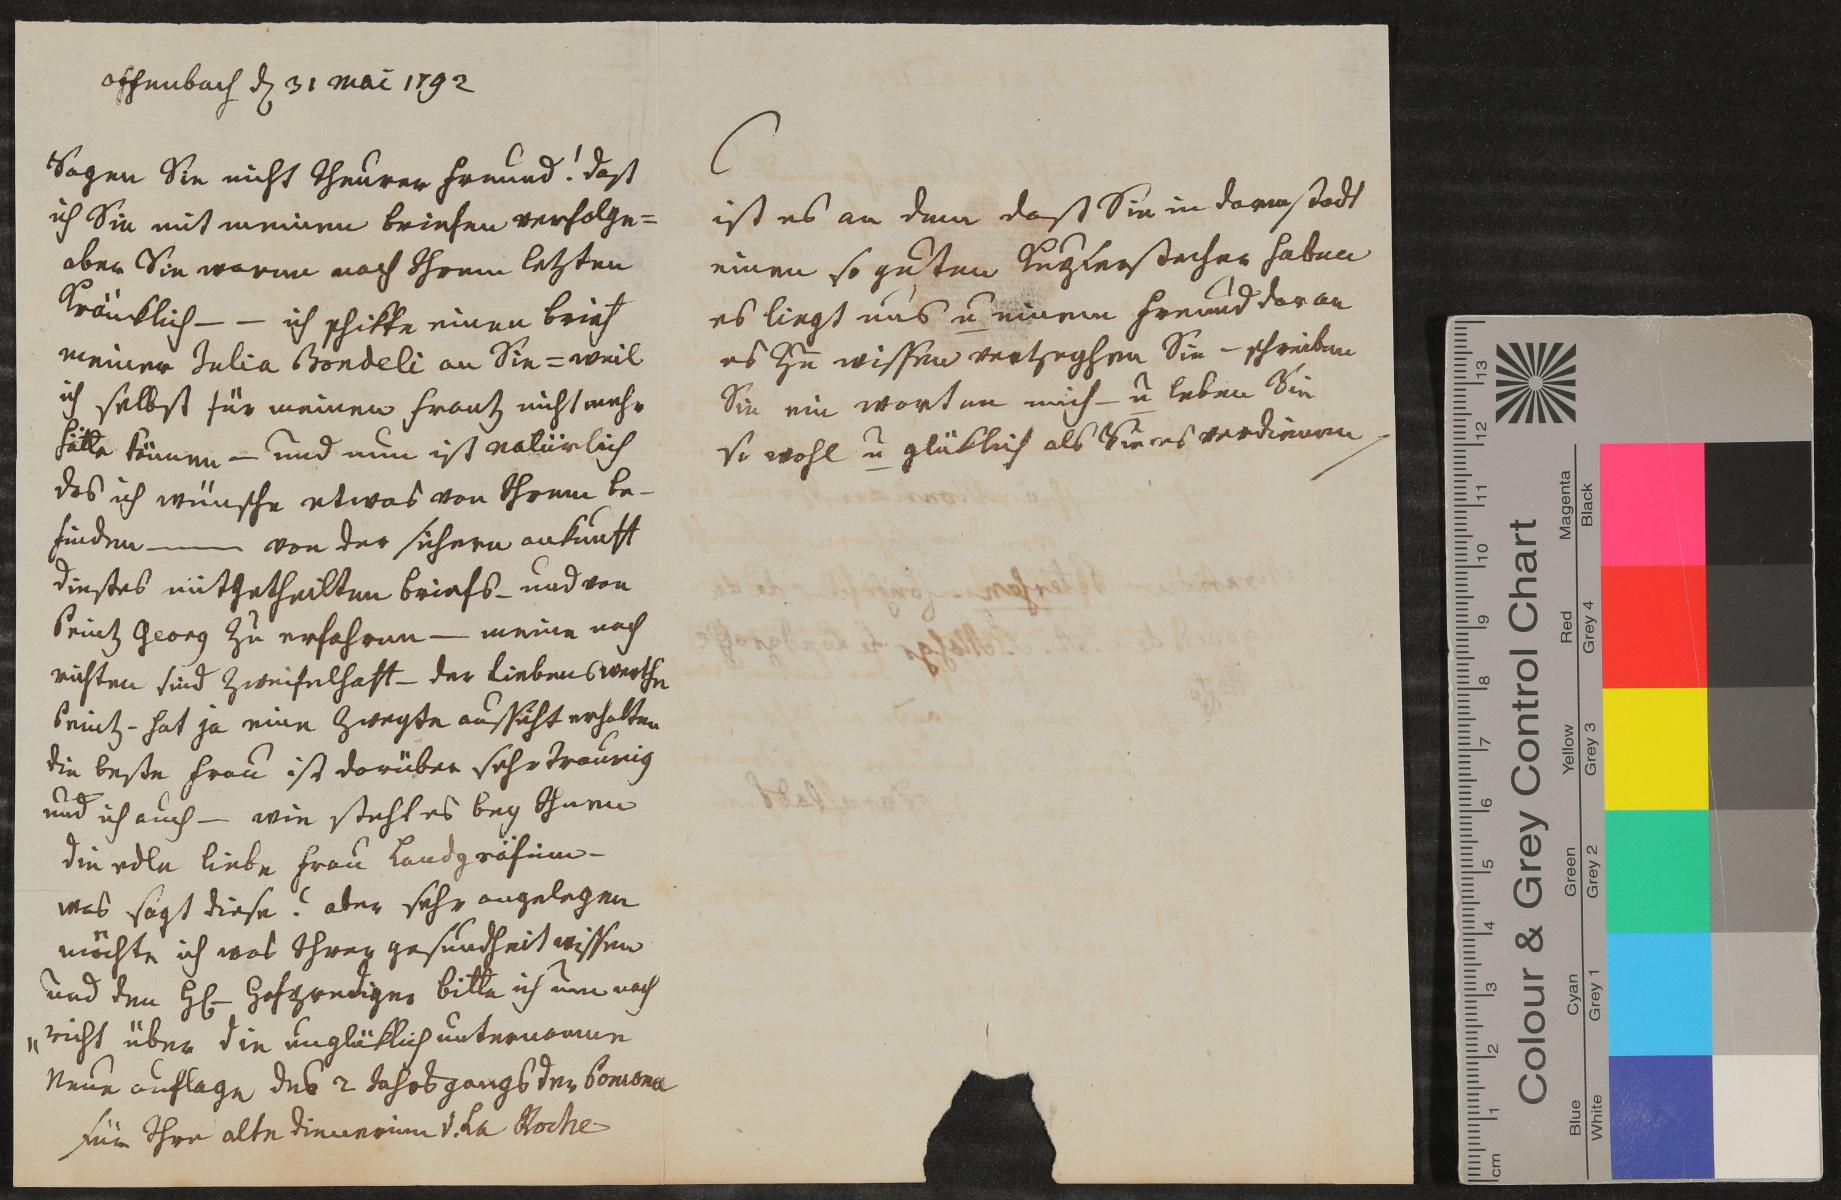 offenbach d 31 mai 1792
Sagen Sie nicht theurer Freund! daß
ich Sie mit meinen briefen verfolge=
aber Sie waren nach Ihrem letzten
kräncklich — — ich schikte einen brief
meiner Julia Bondeli an Sie = weil
ich selbst für meinen Frantz nicht mehr
bitte können — und nun ist natürlich
das ich wünsche etwas von Ihrem be-
finden — von der sichern ankunft
dießes mitgetheilten briefs — und von
Printz Georg zu erfahren — meine nach
richten sind zweifelhaft — der liebenswerthe
Printz - hat ja eine zweyte aussicht erhalten
die beste Frau ist darüber sehr traurig
und ich auch — wie steht es bey Ihnen
die edle liebe Frau Landgräfin —
was sagt diese? aber sehr angelegen
möchte ich was Ihrer gesundheit wissen
und den H— Hofprediger bitte ich um nach
"richt über die unglücklich unternomne
Neue auflage des 2 Jahrsgangs der Pomona
für Ihre alte dienerin v. La Roche
ist es an dem daß Sie in darmstadt
einen so guten Kupferstecher haben
es liegt uns u einem Freund daran
es zu wissen Sie — schreiben
Sie ein wort an mich — u leben Sie
so wohl u glüklich als Sie es verdienen